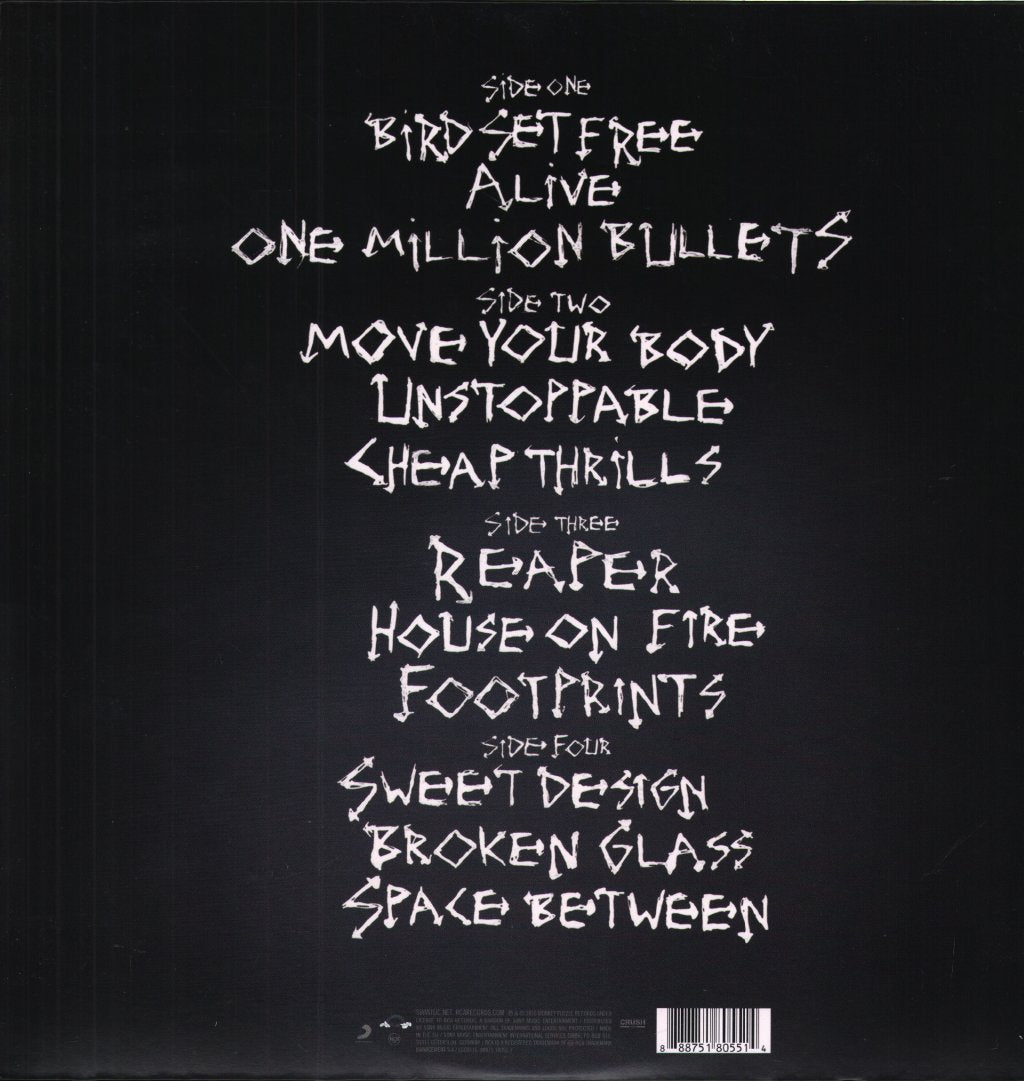 SIDE ONE
BIRD SET FREE
ALIVE
ONE MILLION BULLETS
SIDE TWO
MOVE YOUR BODY
UNSTOPPABLE
CHEAP THRILLS
SIDE THREE
REAPER
HOUSE ON FIRE
FOOTPRINTS
SIDE FOUR
SWEET DESIGN
BROKEN GLASS
SPACE BETWEEN
CRUSH
8 88751 80551 4